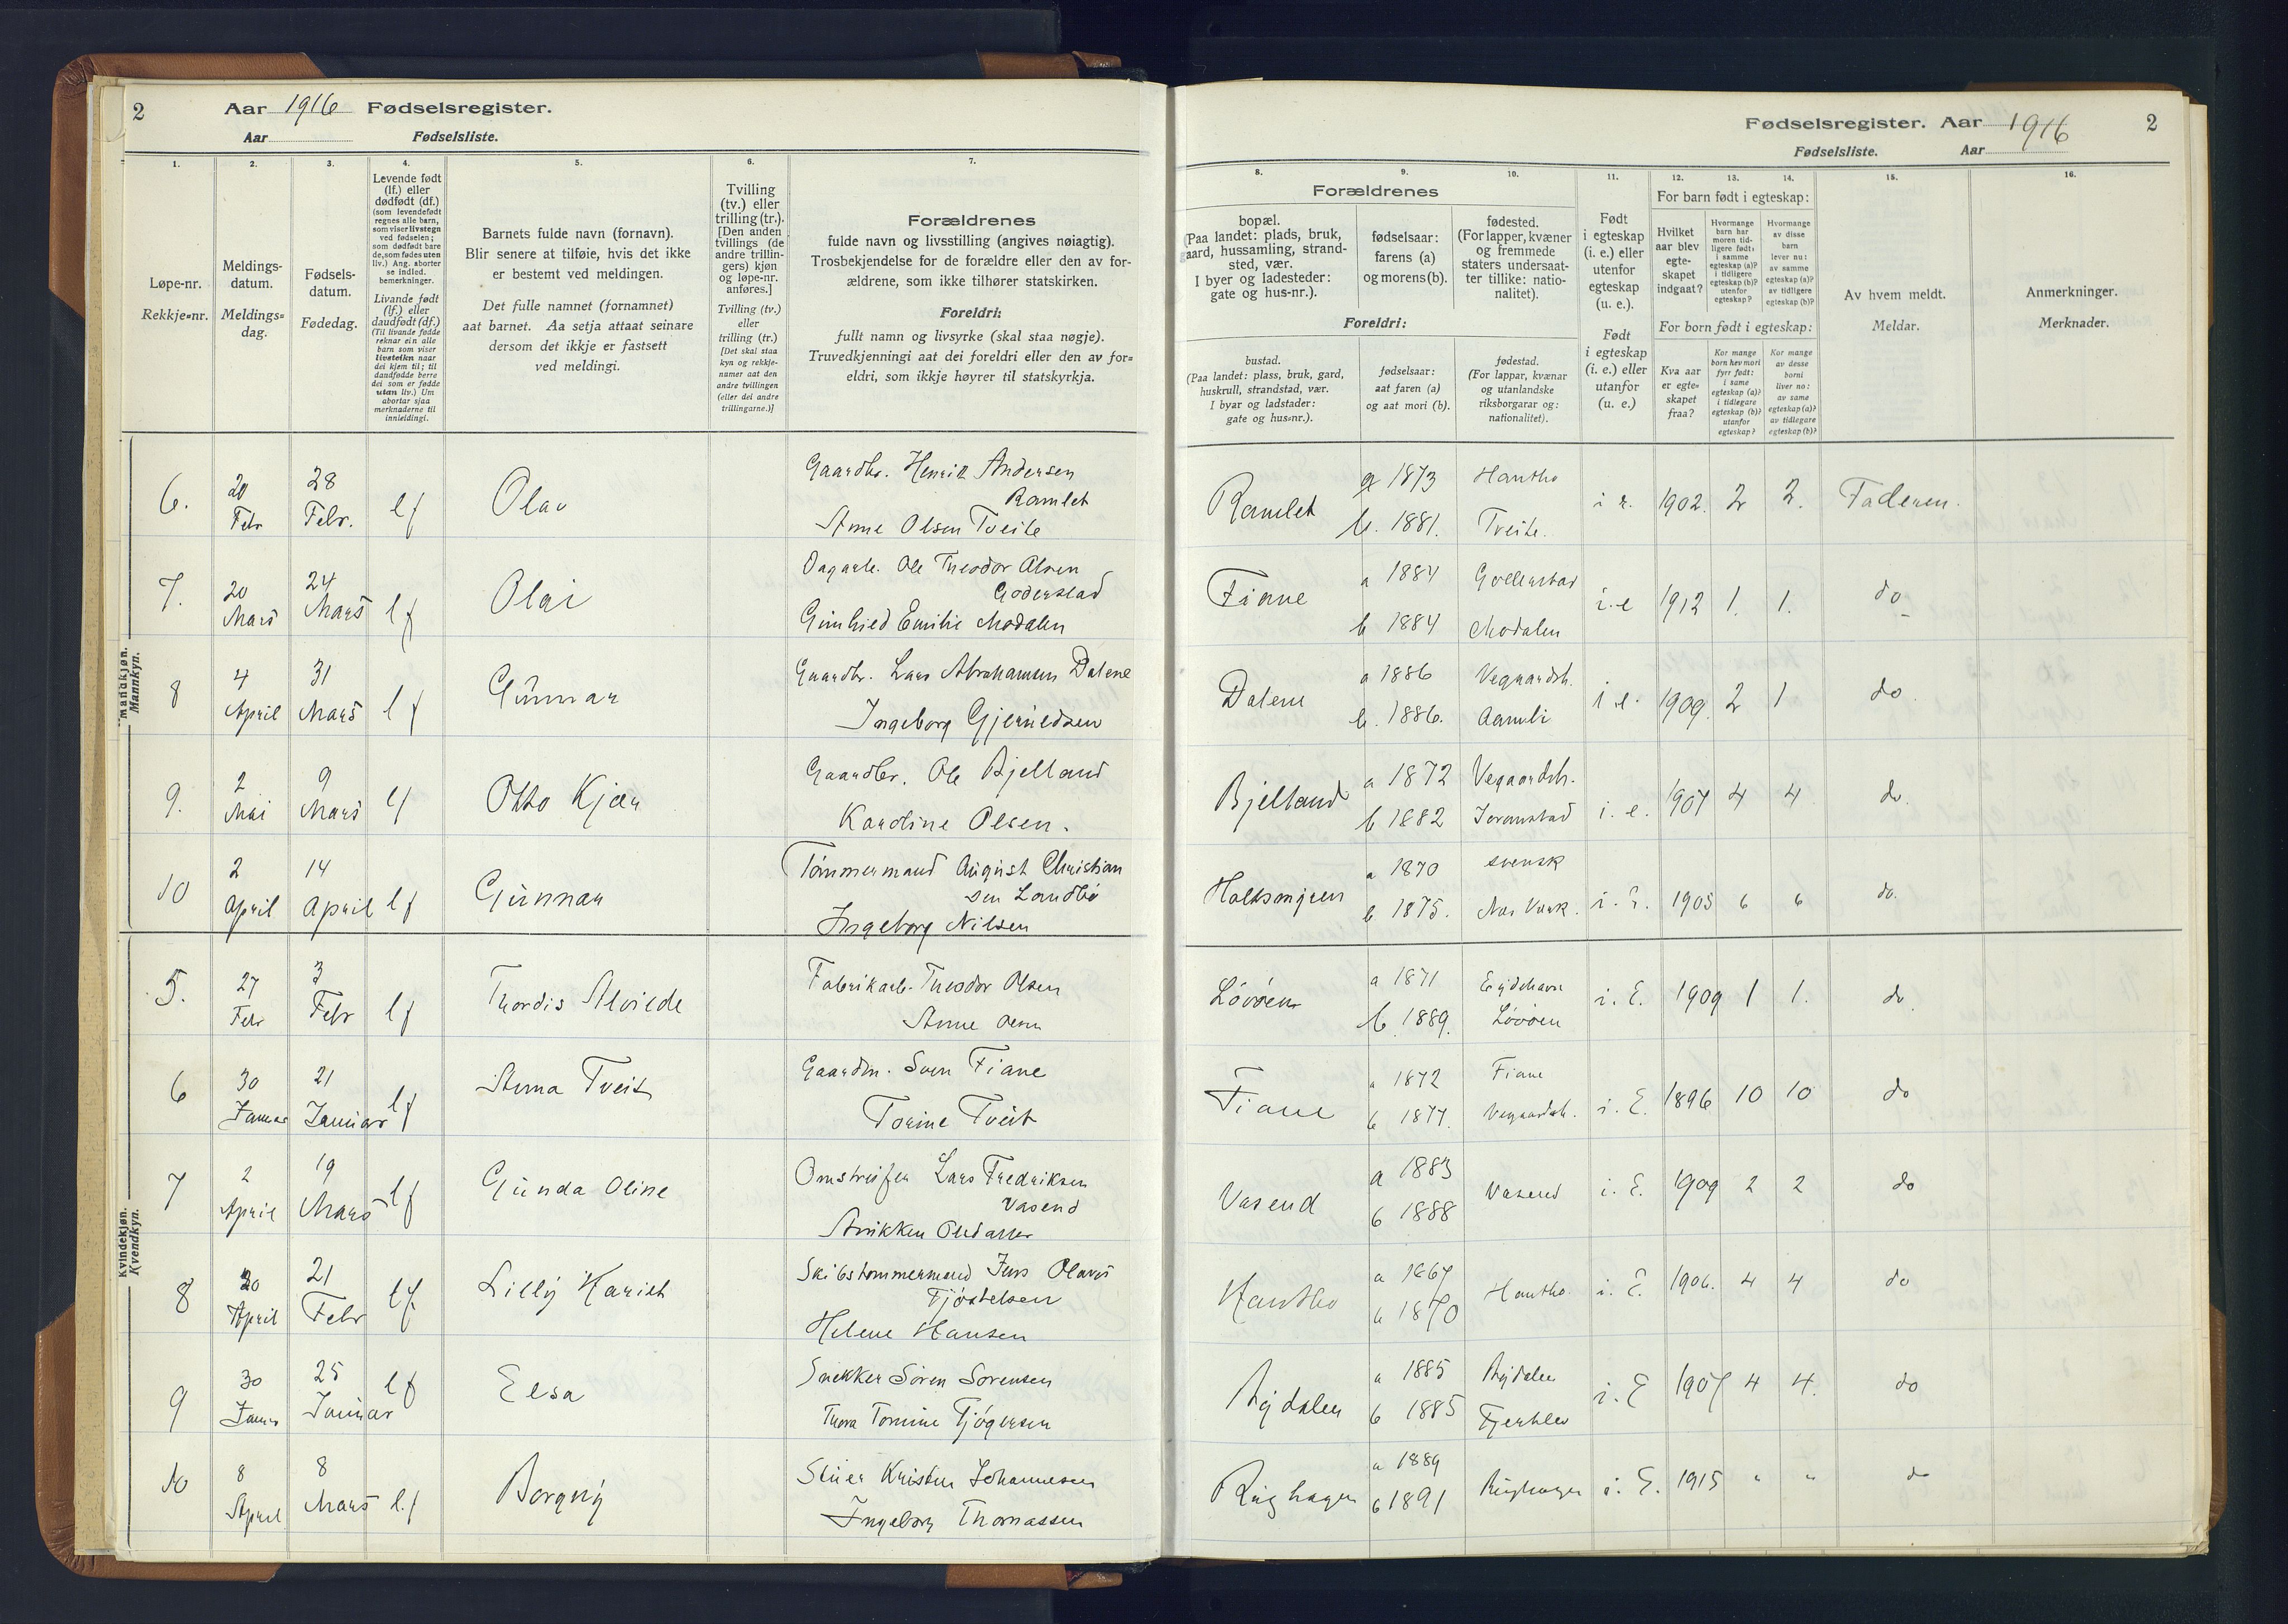 2
Aar 1916 Fødselsregister.
Aar Fødselsliste.
1.
2.
3.
4.
5.
6.
7.
Løpe-nr.
Rekkje=nr.
Meldings-
datum.
Meldings=
dag.
Fødsels-
datum.
Fødedag.
Levende født
(lf.) eller
dødfødt (df.)
(som levendefødt
regnes alle barn,
som viser livstegn
ved fødselen;
som dødfødt bare
de, som fødes uten
liv.) Ang. aborter
se indled.
bemerkninger.
Livande født
(lf.) eller
daudfødt (df.)
(Til livande fødde
reknar ein alle
barn som viser
livsteikn naar
dei kjem til; til
daudfødde berre
dei som er fødde
utan liv.) Um
abortar sjaa
merknaderne til
innleidingi.
Barnets fulde navn (fornavn).
Blir senere at tilføie, hvis det ikke
er bestemt ved meldingen.
Det fulle namnet (fornamnet)
aat barnet. Aa setja attaat seinare
dersom det ikkje er fastsett
ved meldingi.
Tvilling
(tv.) eller
trilling (tr.).
[Den anden
tvillings (de
andre trillin-
gers) kjøn
og løpe-nr.
anføres.]
Tvilling (tv.)
eller
trilling (tr.)
[Det skal staa
kyn og rekkje-
numer aat den
andre tvillingen
(eller dei andre
trillingarne.)]
Forældrenes
fulde navn og livsstilling (angives nøiagtig).
Trosbekjendelse for de forældre eller den av for-
ældrene, som ikke tilhører statskirken.
Foreldri:
fullt namn og livsyrke (skal staa nøgje).
Truvedkjenningi aat dei foreldri eller den av for=
eldri, som ikkje høyrer til statskyrkja.
Mandkjøn.
Mannkyn.
6. 20 Febr 28 Febr. lf Olav
Gaardbr. Henrik Andersen
Ramlet
Anne Olsen Tveite
7. 20 Mars 24 Mars lf Olai
Ole Theodor Olsen
Goderstad
Emilie Modalen
8 4 April 31 Mars lf Gunnar
Gaardbr. Lars Abrahamsen Dalene
Ingeborg
9. 2 Mai 9 Mars lf Otto Kjær
Gaardbr. Ole Bjelland
Karoline Olsen.
10 2 April 14 April lf Gunnar
Tømmermand August Christian
sen Landbø
Ingeborg Nilsen
Kvindekjøn.
Kvendkyn.
5. 27 Febr 3 Febr lf Thordis Alvilde
Fabrikarb. Theodor Olsen
Anne
6 30 Januar 21 Januar lf Anna Tveit
Gaardbr. Sven Fiane
Torine Tveit
7 2 April 19 Mars lf Gunda Oline
Omstreifer Lars Fredriksen
Vasend
8 20 April 21 Febr lf. Lilly Hariet
Skibstømmermand Jens Olaus
Tjøstelsen
Helene Hansen
9 30 Januar 25 Januar lf Elsa
Snekker Søren Sørensen
Thora Tomine
10 8 April 8 Mars l.f Borgny
Kristen Johannesen
Ingeborg Thomassen
Fødselsregister. Aar 1916 2
Fødselsliste. Aar
8.
9.
10.
11.
12.
13.
14.
15.
16.
Forældrenes
bopæl.
(Paa landet: plads, bruk,
gaard, hussamling, strand-
sted, vær.
I byer og ladesteder:
gate og hus-nr.).
fødselsaar:
farens (a)
og morens (b).
fødested.
(For lapper, kvæner
og fremmede
staters undersaat-
ter tillike: natio-
nalitet).
Foreldri:
bustad.
(Paa landet: plass, bruk, gard,
huskrull, strandstad, vær.
I byar og ladstader:
gate og hus=nr.).
fødselsaar:
aat faren (a)
og aat mori (b).
fødestad.
(For lappar, kvænar
og utanlandske
riksborgarar og:
nationalitet).
Født
i egteskap
(i. e.) eller
utenfor
egteskap
(u. e.).
Født
i egteskap
(i. e.) eller
utanfor
(u. e.)
For barn født i egteskap:
Hvilket
aar blev
egte-
skapet
indgaat?
Hvormange
barn har
moren tid-
ligere født:
i samme
egteskap (a)?
i tidligere
egteskap (b)?
utenfor
egteskap?
Hvormange
av disse
barn
lever nu:
av samme
egteskap (a)?
av tidligere
egteskap (b)?
For born født i egteskap:
Kva aar
er egte=
skapet
fraa?
Kor mange
born hev mori
fyrr født:
i same
egteskap (a)?
i tidlegare
egteskap (b)?
utanfor
egteskap?
Kor mange
av desse
borni
liver no:
av same
egteskap (a)?
av tidlegare
egteskap (b)?
Av hvem meldt.
Meldar.
Anmerkninger.
Merknader.
Ramlet a 1873 Hantho
b. 1881. Tveite. i e. 1902. 2 2. Faderen.
Fiane a 1884 Goderstad
b 1884 Modalen i.e 1912 1. 1. do
Dalene a 1886 Vegaardsh.
b. 1886. Aamli i e. 1909. 2 1 do.
Bjelland a 1872 Vegaardsh.
b 1882 i. e. 1907 4 4 do.
a 1870 svensk
b 1875. i. E. 1905 6 6 do.
Løvøen a 1871 Eydehavn
b. 1889. Løvøen i. E. 1909 1 1. do.
Fiane a 1872 Fiane
b 1877. Vegaardsh. i. E. 1896 10 10 do
Vasend a 1883
b 1888 Vasend i. E. 1909 2 2 do
Hantho a 1867
b 1870 Hantho. i. E. 1906. 4 4 do
a 1885
b 1885 i. E 1907 4 4. do
a 1889
b 1891 i. E. 1915 " " do